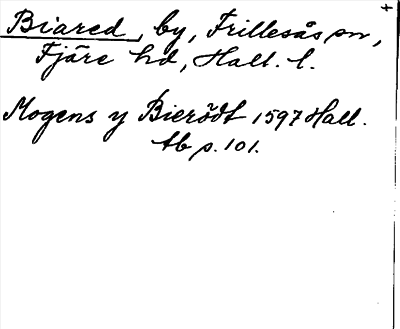 Biared, by, Frillesås sn,
Fjäre hd, Hall. l.
Mogens y Bierödt 1597 Hall.
tb p. 101.